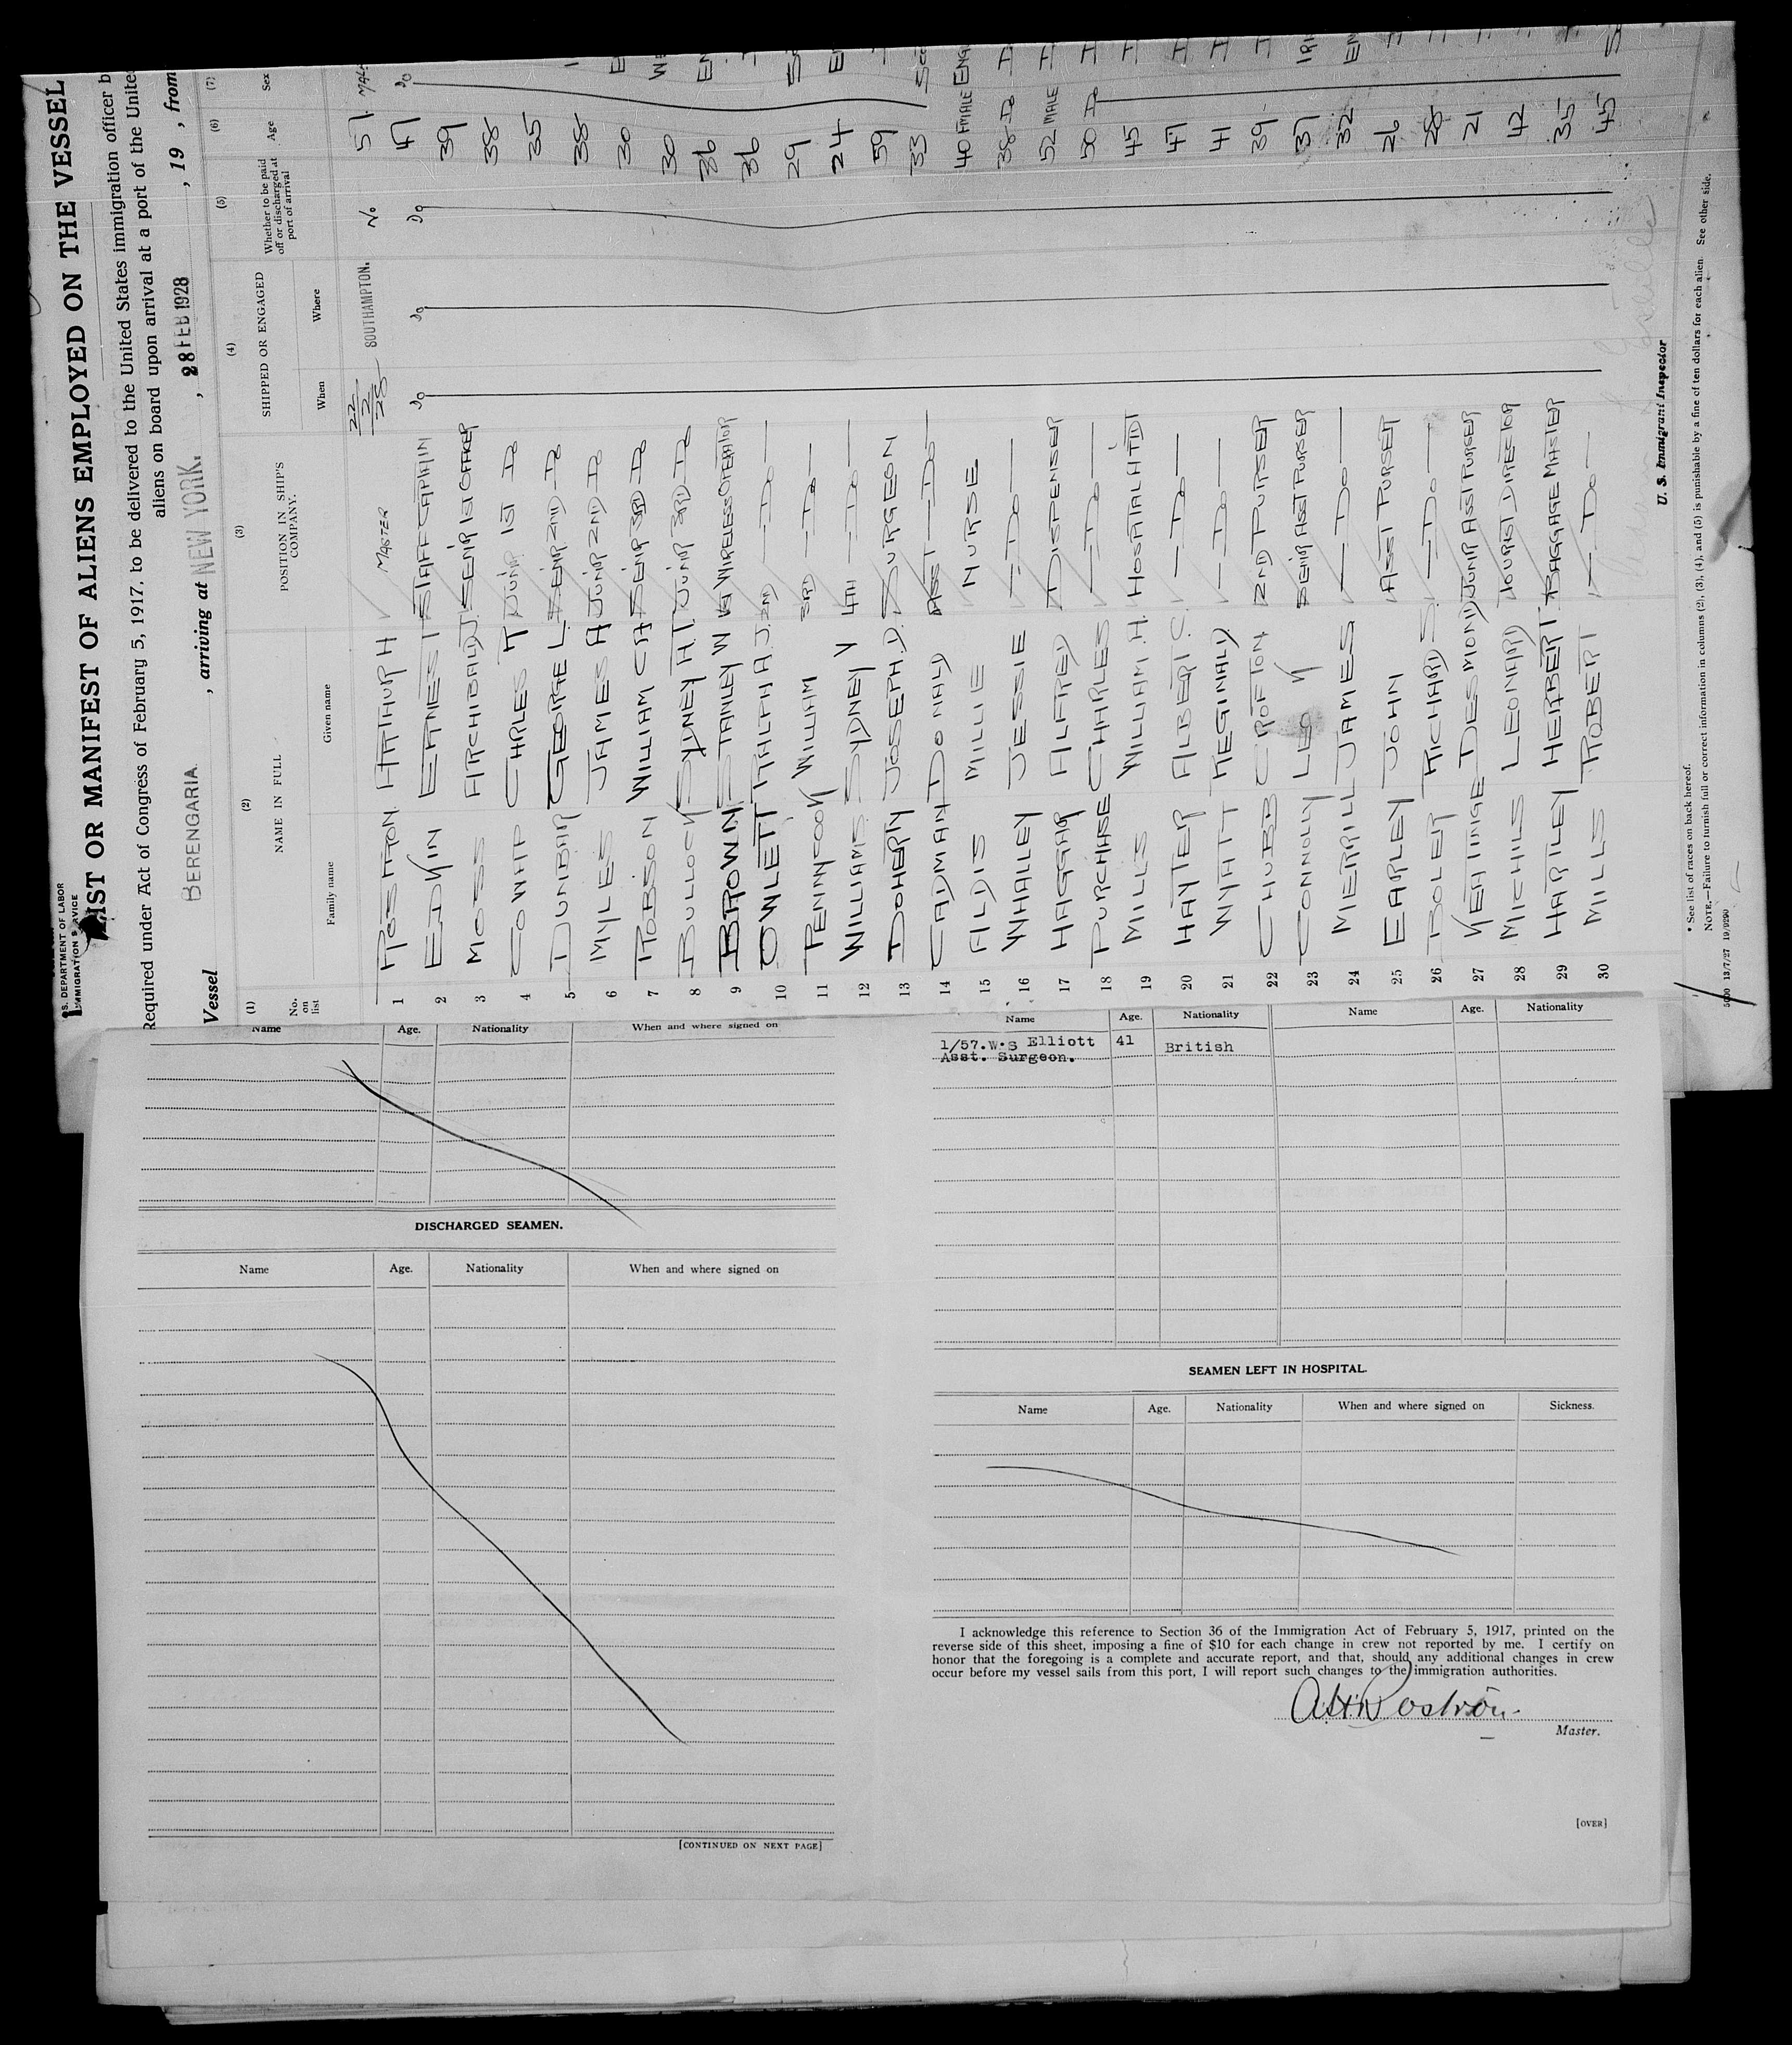 U.S. DEPARTMENT OF LABOR
IMMIGRATION SERVICE
LIST OR MANIFEST OF ALIENS EMPLOYED ON THE VESSEL
Required under Act of Congress of February 5, 1917, to be delivered to the United States immigration officer b
aliens on board upon arrival at a port of the Unite
Vessel BERENGARIA , arriving at NEW YORK. , 28 FEB 1928 , 19 , from
(1) (2) (3) (4) (5) (6) (7)
No. on list NAME IN FULL POSITION IN SHIP'S COMPANY. SHIPPED OR ENGAGED Whether to be paid off or discharged at port of arrival Age Sex
Family name Given name When Where
1 ROSTRON ARTHUR H MASTER 22/2/28 SOUTHAMPTON. No 57 MALE
2 EDKIN ERNEST STAFF CAPTAIN Do Do Do 47 Do
3 MOSS ARCHIBALD J. SENIR 1ST OFFICER 39
4 COWAP CHARLES R JUNIR 1ST Do 38
5 DUNBAR GEORGE L. SENIR 2ND Do 35
6 MYLES JAMES A JUNIR 2ND Do 38
7 ROBSON WILLIAM C A SENIR 3RD Do 30
8 BULLOCK SYDNEY H.T. JUNIR 3RD Do 30
9 BROWN STANLEY W 1ST WIRELESS OPERATOR 36
10 OWLETT RALPH A.J. 2ND — Do — 36
11 PENNYCOOK WILLIAM 3RD — Do — 29
12 WILLIAMS SYDNEY V 4TH — Do — 24
13 DOHERTY JOSEPH D. SURGEON 59
14 CADMAN DONALD ASST — Do — 33
15 ALDIS MILLIE NURSE 40 FMALE ENG
16 WHALLEY JESSIE — Do — 38 Do
17 HAGGAR ALFRED DISPENSER 52 MALE
18 PURCHASE CHARLES — Do — 50 Do
19 MILLS WILLIAM H. HOSPITAL ATTDT 45
20 HAYTER ALBERT C. — Do — 47
21 WYATT REGINALD — Do — 41
22 CHUBB CROFTON 2ND PURSER 39
23 CONNOLLY LEO SENIR ASST PURSER 37
24 MERRILL JAMES — Do — 32
25 EARLEY JOHN ASST PURSER 26
26 BOLER RICHARD S. — Do — 28
27 KEATINGE DESMOND JUNIR ASST PURSER 21
28 MICHILS LEONARD TOURIST DIRECTOR 42
29 HARTLEY HERBERT BAGGAGE MASTER 35
30 MILLS ROBERT — Do — 45
U. S. Immigrant Inspector
* See list of races on back hereof.
NOTE.—Failure to furnish full or correct information in columns (2), (3), (4), and (5) is punishable by a fine of ten dollars for each alien See other side.
5000 13/7/27 19/9290
Name Age. Nationality When and where signed on
DISCHARGED SEAMEN.
Name Age. Nationality When and where signed on
[CONTINUED ON NEXT PAGE]
Name Age. Nationality Name Age. Nationality
1/57. W.S Elliott 41 British
Asst. Surgeon.
SEAMEN LEFT IN HOSPITAL.
Name Age. Nationality When and where signed on Sickness.
I acknowledge this reference to Section 36 of the Immigration Act of February 5, 1917, printed on the
reverse side of this sheet, imposing a fine of $10 for each change in crew not reported by me. I certify on
honor that the foregoing is a complete and accurate report, and that, should any additional changes in crew
occur before my vessel sails from this port, I will report such changes to the immigration authorities.
A.H. Rostron.
Master.
[OVER]